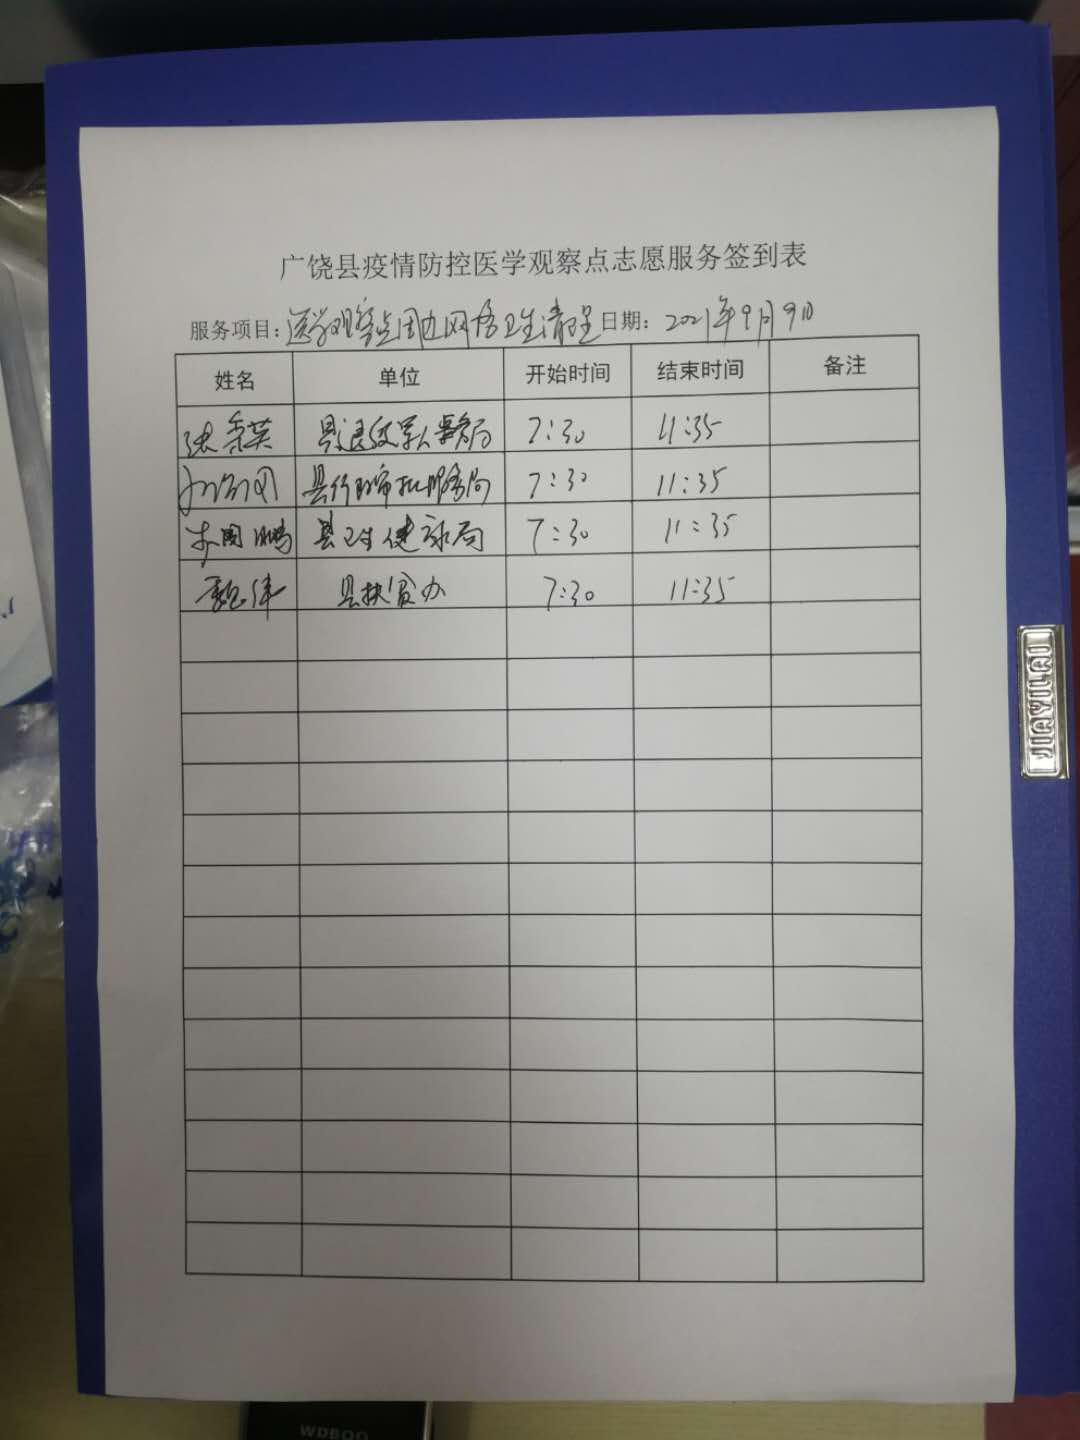 广饶县疫情防控医学观察点志愿服务签到表
服务项目：医学观察点周边网格卫生清理 日期：2021年9月9日
姓名 单位 开始时间 结束时间 备注
张秀英 县退役军人事务局 7:30 11:35
县行政审批服务局 7:30 11:35
国鹏 县卫生健康局 7:30 11:35
魏伟 县扶贫办 7:30 11:35
JIALIYA
WDBOO